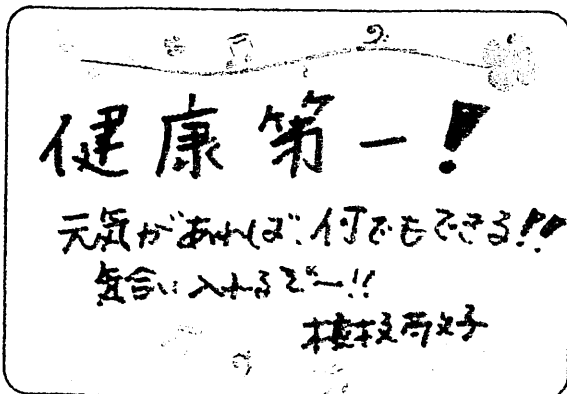 健康第一!
元気があれば、何でもできる!!
気合い入れるぞー!!